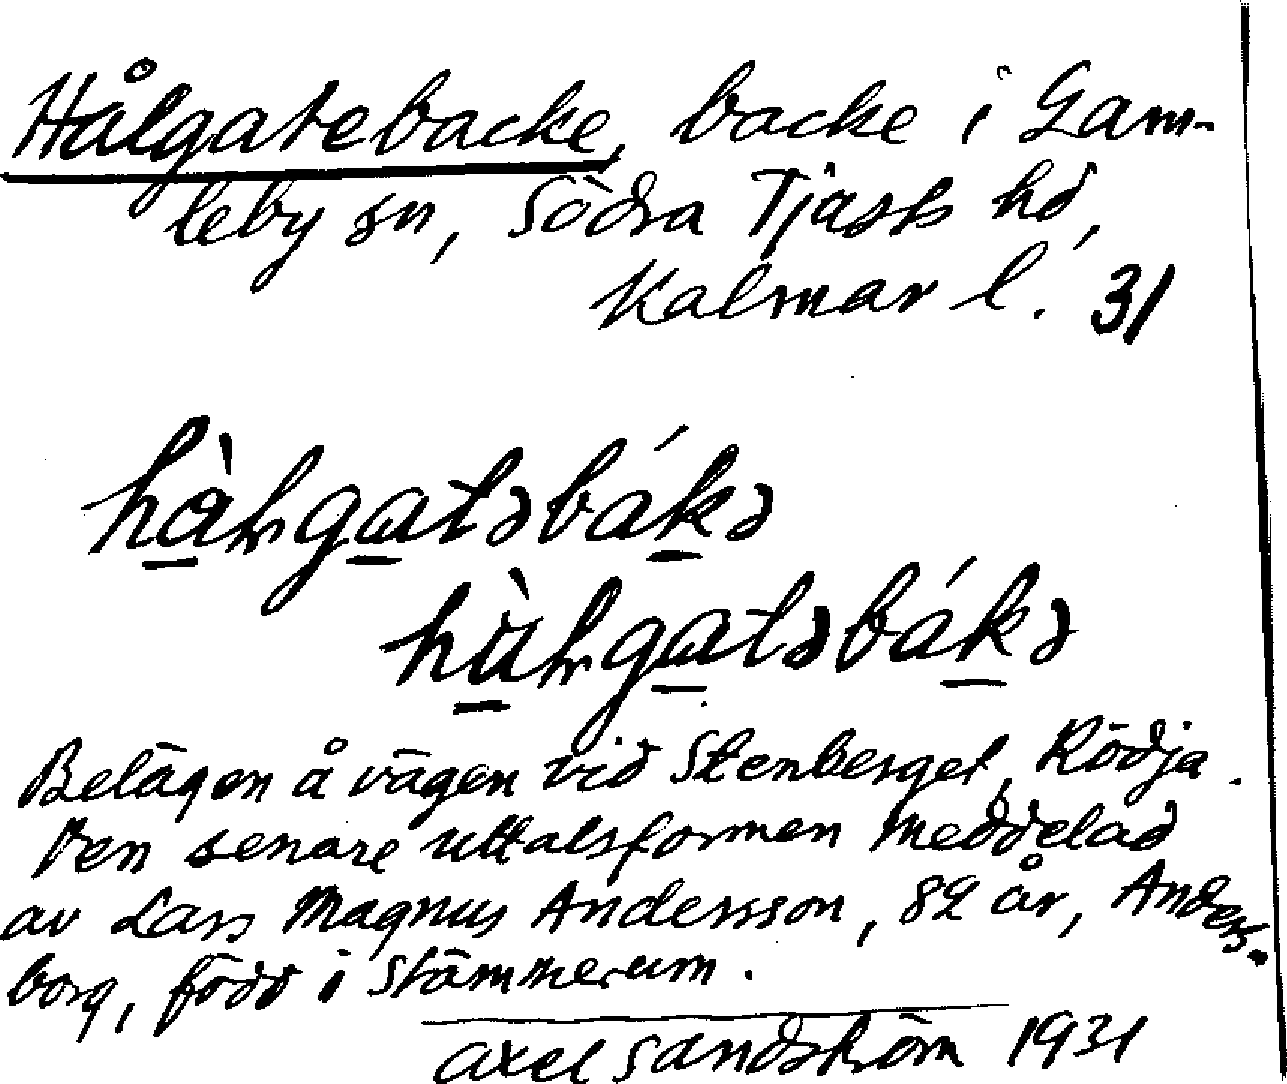 Hålgatebacke, backe i Gam-
leby sn, Södra Tjusts hd,
Kalmar l. 31
Belägen å vägen vid Stenberget, Rödja.
Den senare uttalsformen meddelad
av Lars Magnus Andersson, 82 år, Anders-
borg, född i Stämmerum.
Axel Sandström 1931